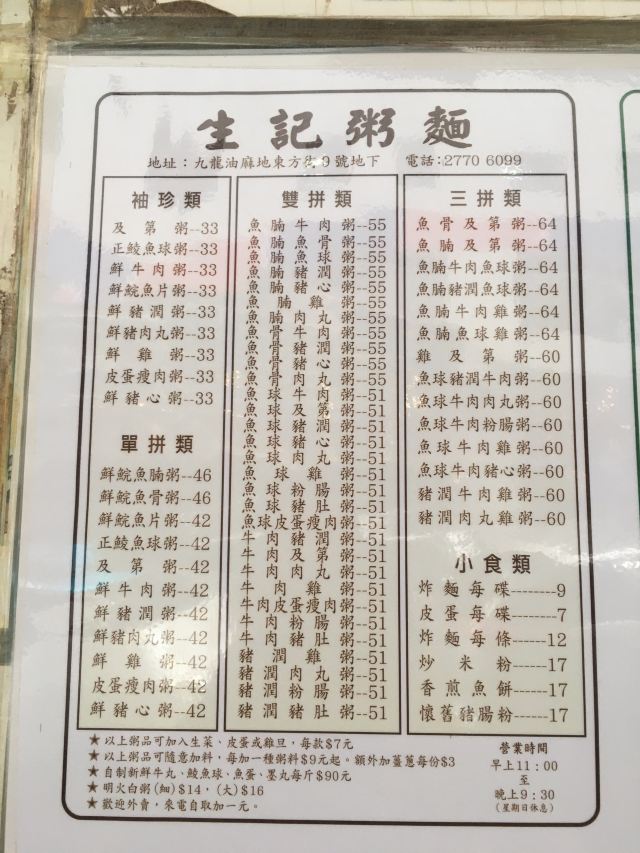 生記粥麵
地址：九龍油麻地東方街9號地下 電話:2770 6099
袖珍類
及第粥--33
正鯪魚球粥--33
鮮牛肉粥--33
鮮鯇魚片粥--33
鮮豬潤粥--33
鮮豬肉丸粥--33
鮮雞粥--33
皮蛋瘦肉粥--33
鮮豬心粥--33
單拼類
鮮鯇魚腩粥--46
鮮鯇魚骨粥--46
鮮鯇魚片粥--42
正鯪魚球粥--42
及第粥--42
鮮牛肉粥--42
鮮豬潤粥--42
鮮豬肉丸粥--42
鮮雞粥--42
皮蛋瘦肉粥--42
鮮豬心粥--42
雙拼類
魚腩牛肉粥--55
魚腩魚骨粥--55
魚腩魚球粥--55
魚腩豬潤粥--55
魚腩豬心粥--55
魚腩雞粥--55
魚腩肉丸粥--55
魚骨牛肉粥--55
魚骨豬潤粥--55
魚骨豬心粥--55
魚骨肉丸粥--55
魚球牛肉粥--51
魚球及第粥--51
魚球豬潤粥--51
魚球豬心粥--51
魚球肉丸粥--51
魚球雞粥--51
魚球粉腸粥--51
魚球豬肚粥--51
魚球皮蛋瘦肉粥--51
牛肉豬潤粥--51
牛肉及第粥--51
牛肉肉丸粥--51
牛肉雞粥--51
牛肉皮蛋瘦肉粥--51
牛肉粉腸粥--51
牛肉豬肚粥--51
豬潤雞粥--51
豬潤肉丸粥--51
豬潤粉腸粥--51
豬潤豬肚粥--51
三拼類
魚骨及第粥--64
魚腩及第粥--64
魚腩牛肉魚球粥--64
魚腩豬潤魚球粥--64
魚腩牛肉雞粥--64
魚腩魚球雞粥--64
雞及第粥--60
魚球豬潤牛肉粥--60
魚球牛肉肉丸粥--60
魚球牛肉粉腸粥--60
魚球牛肉雞粥--60
魚球牛肉豬心粥--60
豬潤牛肉雞粥--60
豬潤肉丸雞粥--60
小食類
炸麵每碟--------9
皮蛋每碟-------7
炸麵每條------12
炒米粉------17
香煎魚餅------17
懷舊豬腸粉-----17
★以上粥品可加入生菜、皮蛋或雞旦，每款$7元
★以上粥品可隨意加料，每加一種粥料$9元起。額外加薑蔥每份$3
★自制新鮮牛丸、鯪魚球、魚蛋、墨丸每斤$90元
★明火白粥(細)$14，(大)$16
★歡迎外賣，來電自取加一元。
營業時間
早上11：00
至
晚上9：30
(星期日休息)